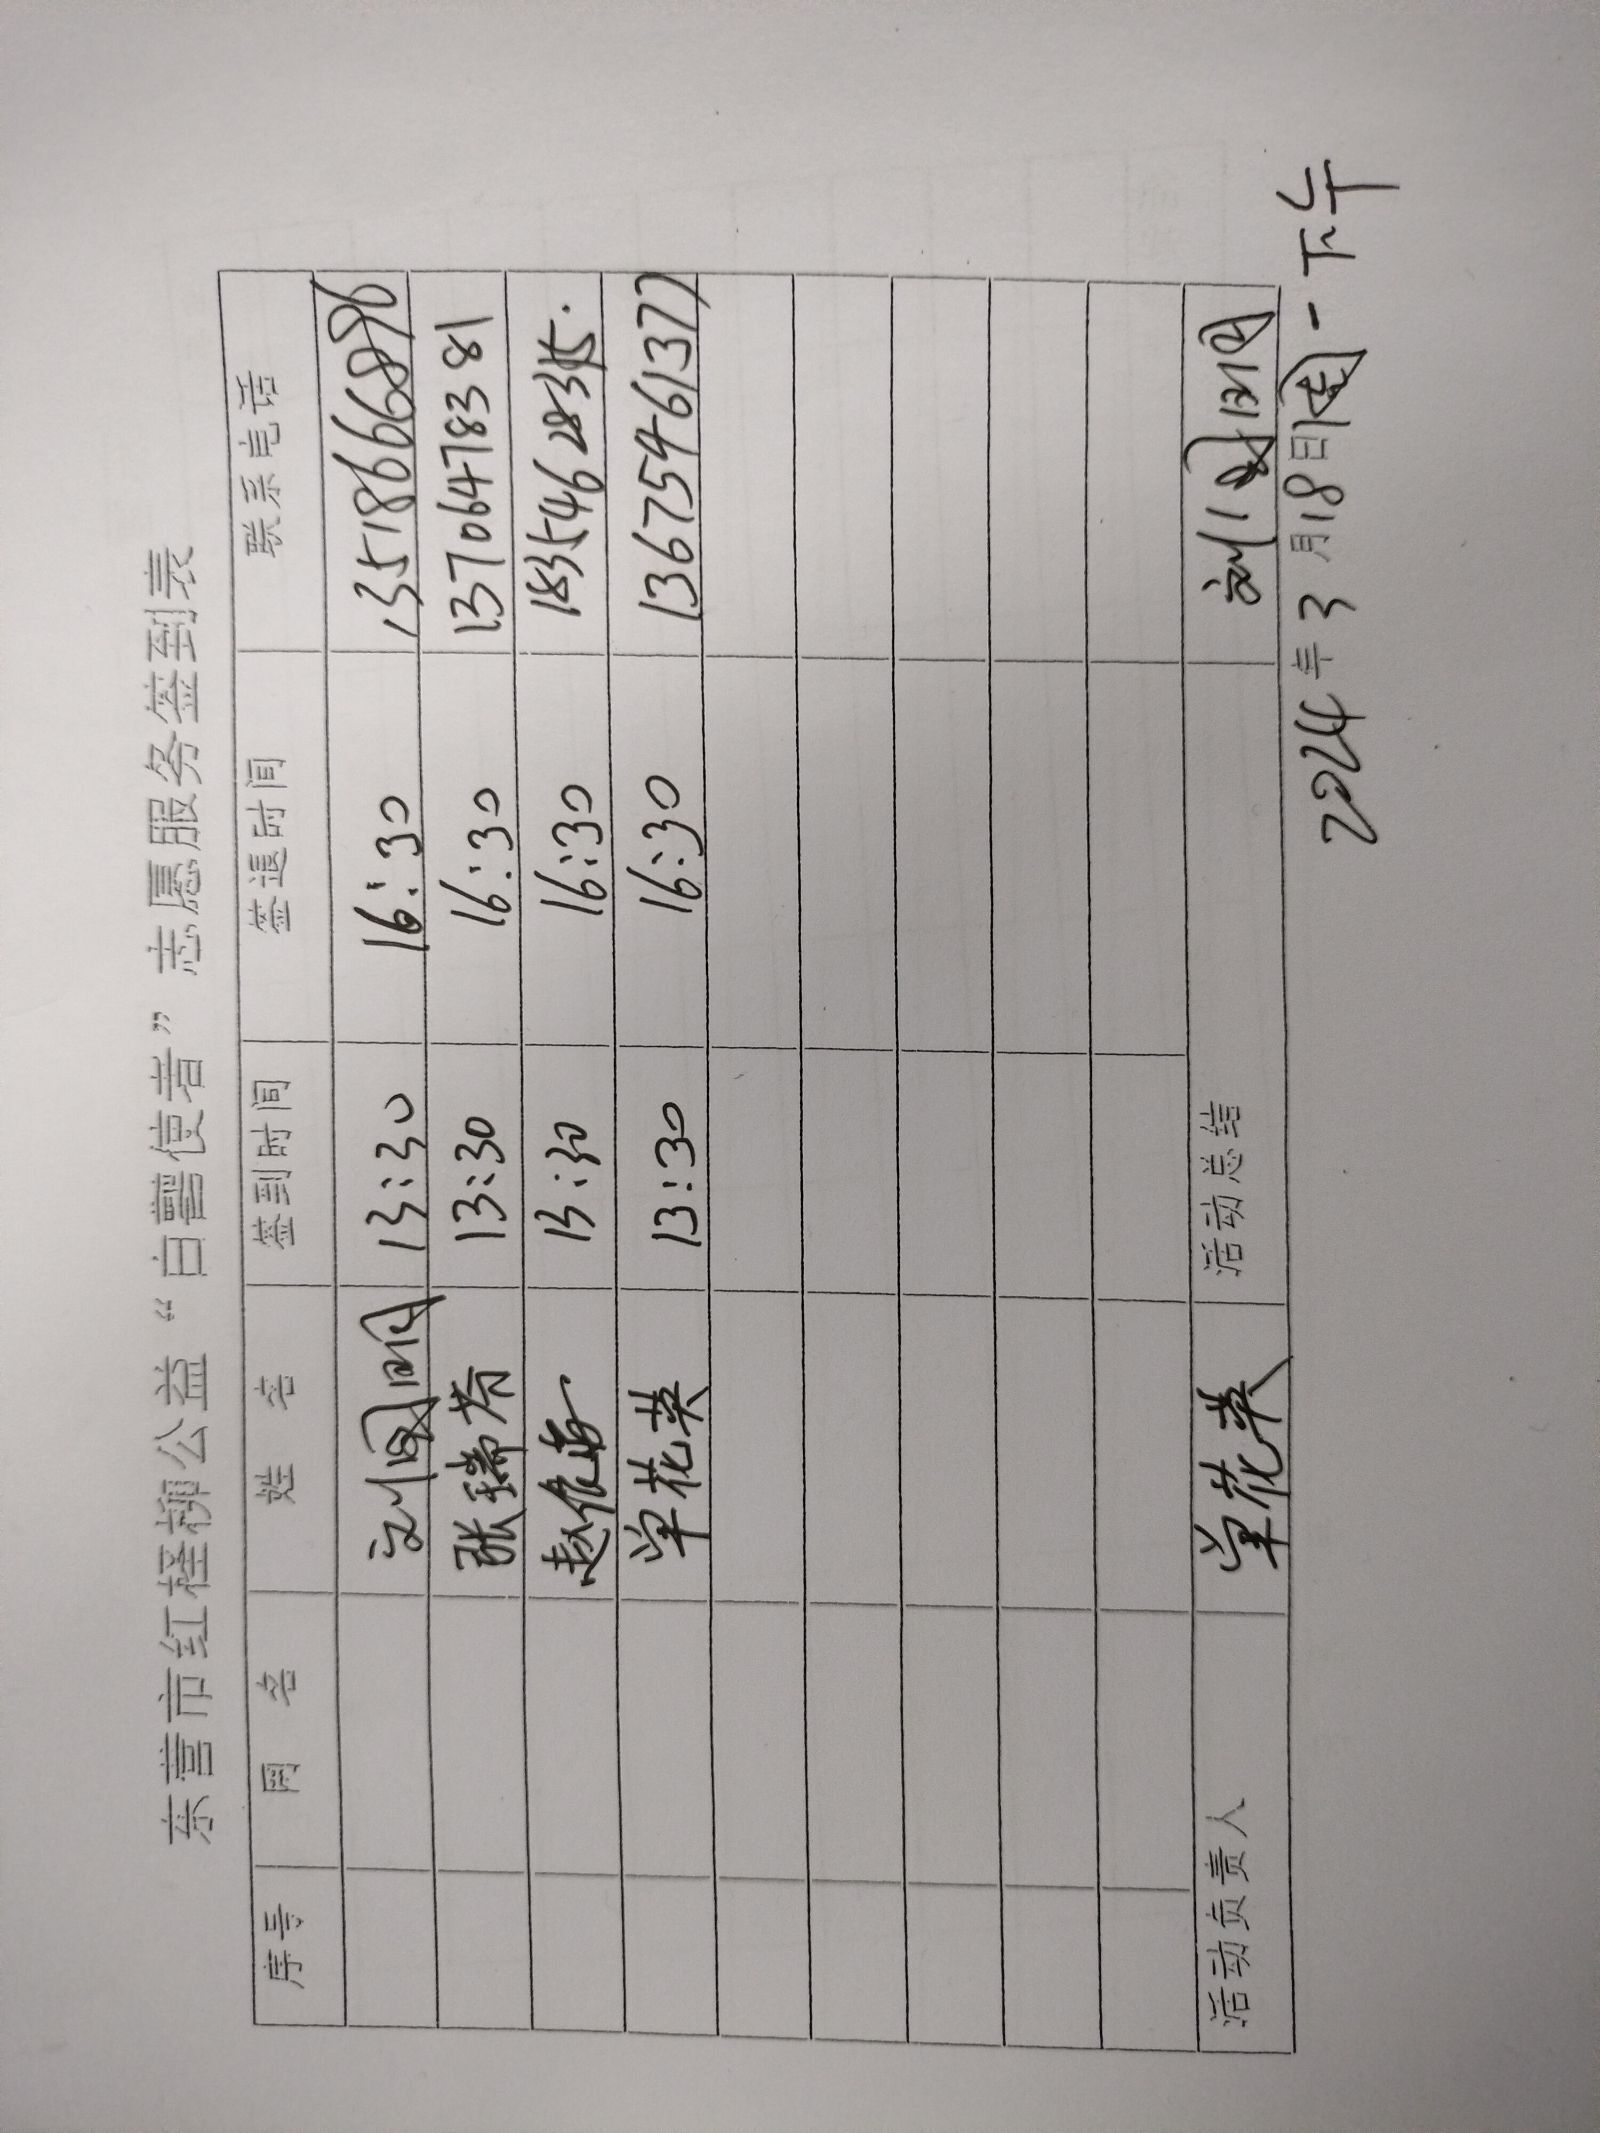 东营市红柽柳公益“白鹭使者”志愿服务签到表
序号 网 名 姓 名 签到时间 签退时间 联系电话
刘国 13:30 16:30 13518666896
张瑞芬 13:30 16:30 13706478381
赵 13:30 16:30 18354628315.
单花英 13:30 16:30 13675461377
活动负责人 单花英 活动总结 刘国
2024年3月18日(周一下午